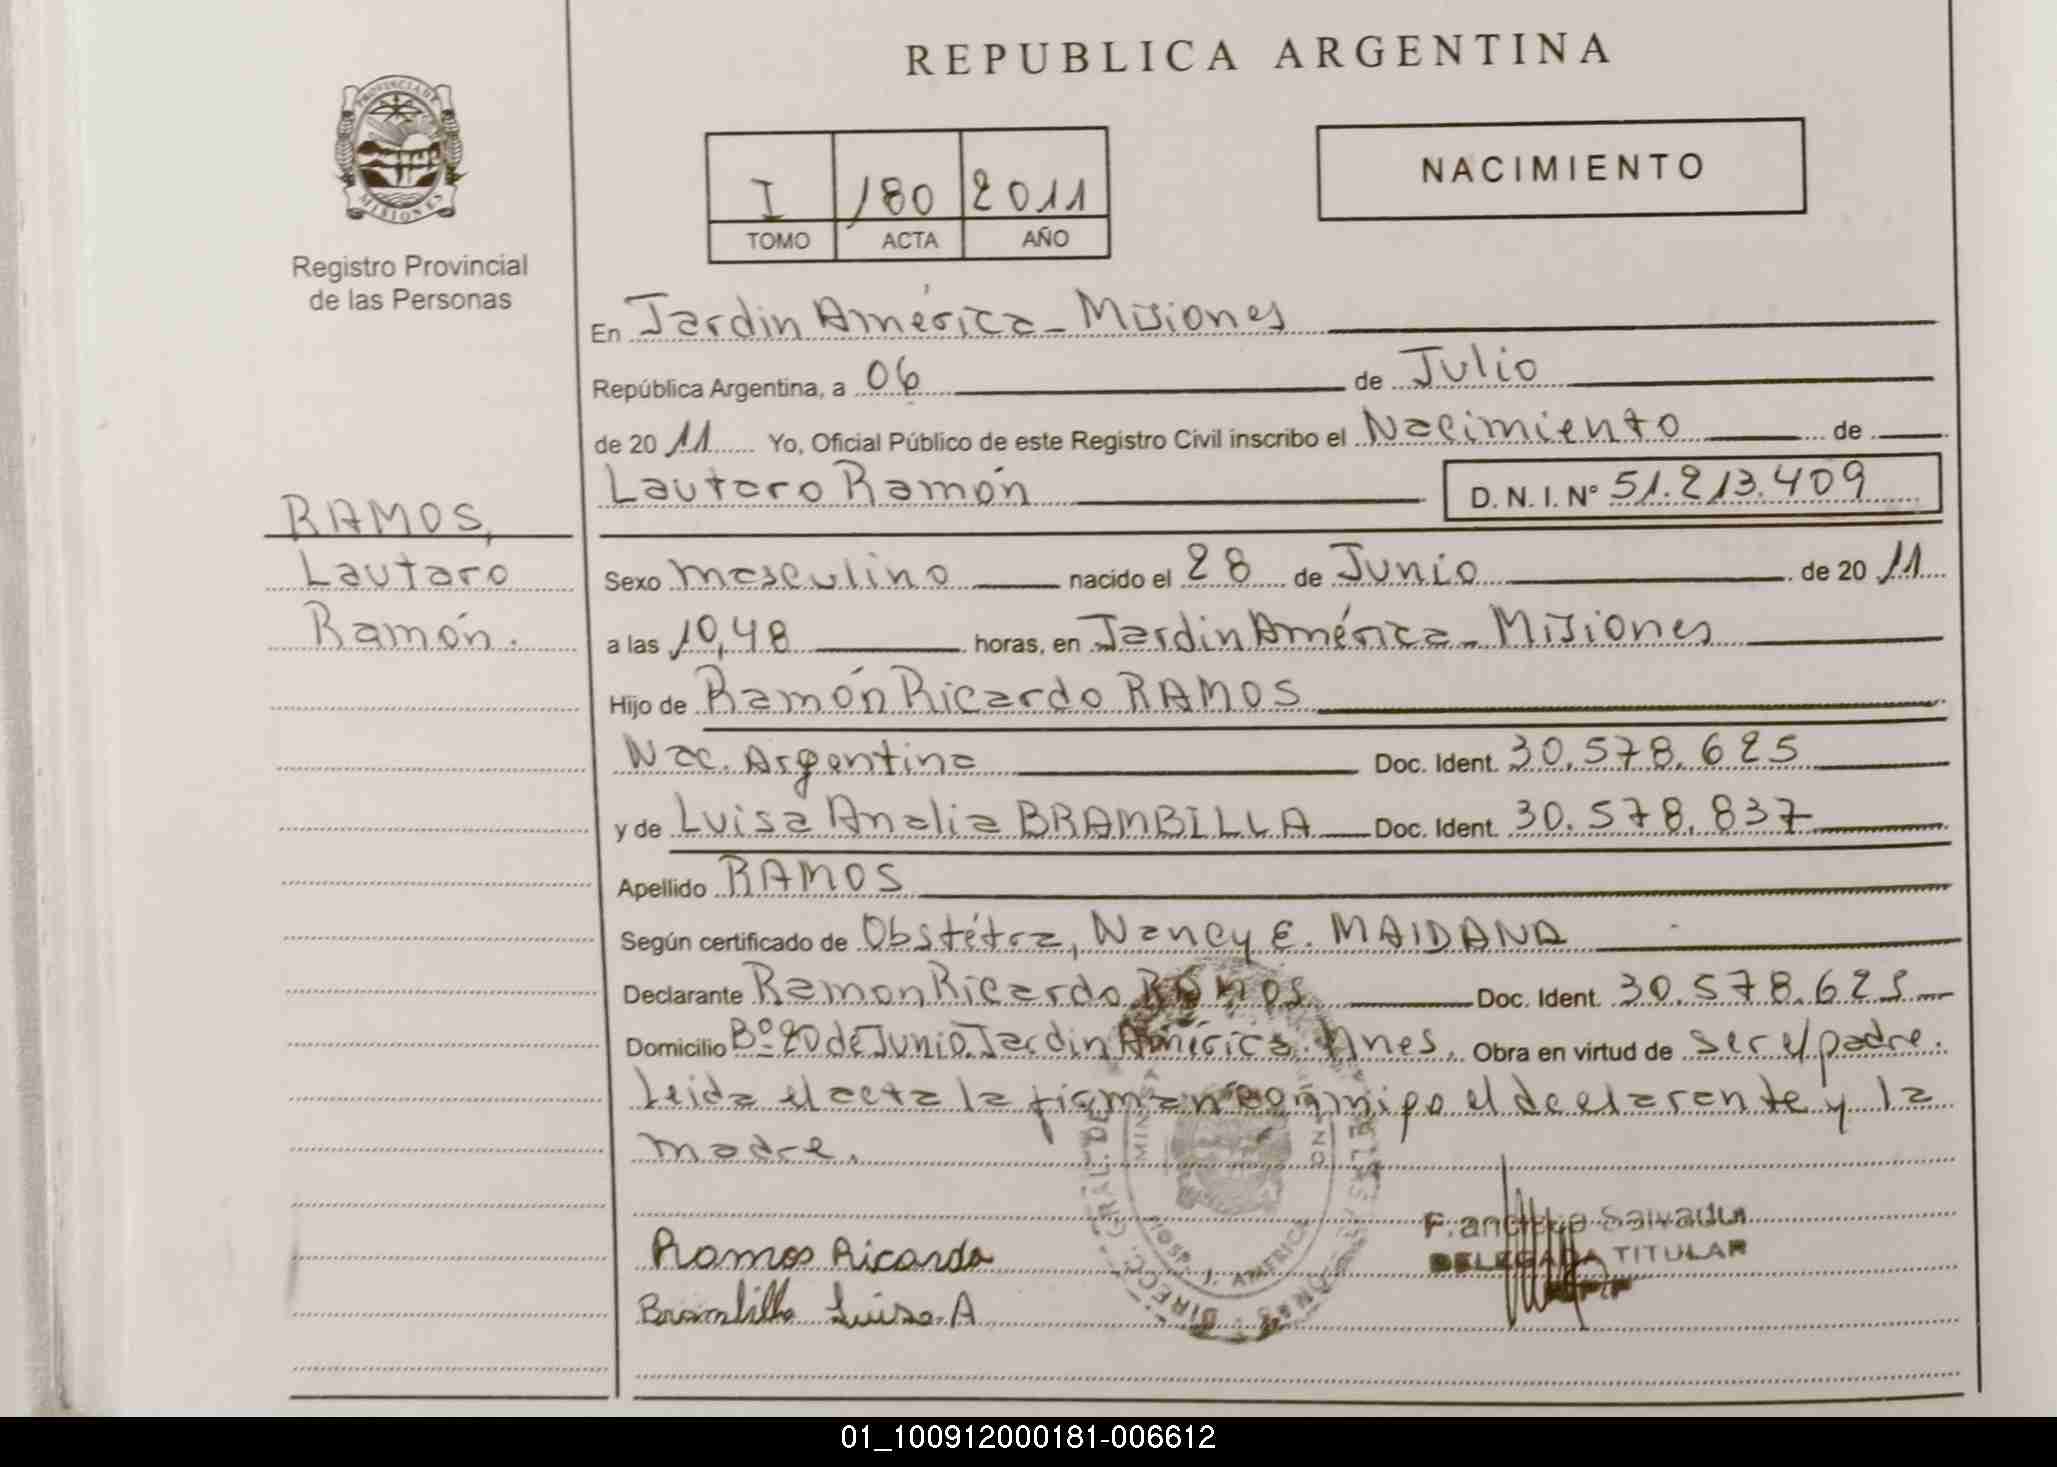 REPUBLICA ARGENTINA
PROVINCIA DE
MISIONES
Registro Provincial
de las Personas
I 180 2011
TOMO ACTA AÑO
NACIMIENTO
En Jardin América - Misiones
República Argentina, a 06 de Julio
de 20 11 Yo, Oficial Público de este Registro Civil inscribo el Nacimiento de
Lautaro Ramón D. N. I. Nº 51.213.409
RAMOS,
Lautaro
Ramón.
Sexo masculino nacido el 28 de Junio de 20 11
a las 10,48 horas, en Jardin América - Misiones
Hijo de Ramón Ricardo RAMOS
Nac. Argentina Doc. Ident. 30.578.625
y de Luisa Analia BRAMBILLA Doc. Ident. 30.578.837
Apellido RAMOS
Según certificado de Obstétra, Nancy E. MAIDANA
Declarante Ramon Ricardo RAMOS Doc. Ident. 30.578.625
Domicilio Bº 20 de Junio. Jardin América. Mnes. Obra en virtud de ser el padre.
Leida el acta la firman conmigo el declarante y la
madre.
HOSP. J. AMERICA
Salvadui
DELEGADA TITULAR
Ramos Ricardo
Brambilla Luisa A
01_100912000181-006612